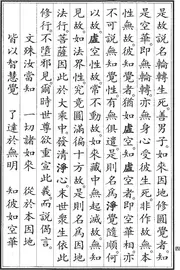 是故說名輪轉生死善男子如來因地修圓覺者知
是空華即無輪轉亦無身心受彼生死非作故無本
性無故彼知覺者猶如虛空知虛空者即空華相亦
不可說無知覺性有無俱遣是則名為淨覺隨順何
以故虛空性故常不動故如來藏中無起滅故無知
見故如法界性究竟圓滿徧十方故是則名為因地
法行菩薩因此於大乘中發清淨心末世眾生依此
修行不墮邪見爾時世尊欲重宣此義而說偈言
文殊汝當知 一切諸如來 從於本因地
皆以智慧覺 了達於無明 知彼如空華